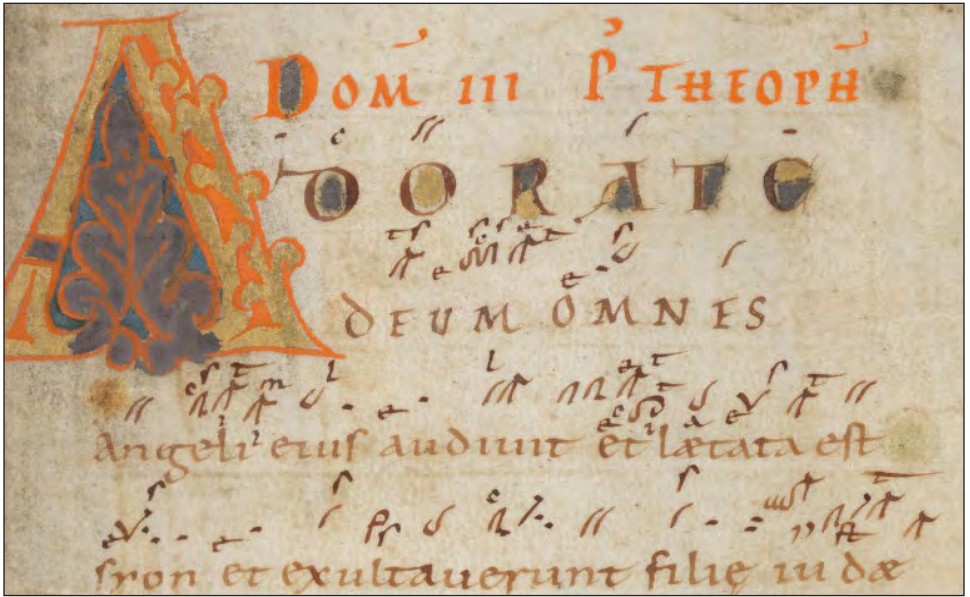 DOM̄ III P̄ THEOPH̄
ADORATE
DEUM OMNES
angeli eius audiunt et lætata est
syon et exultauerunt filię iudæ